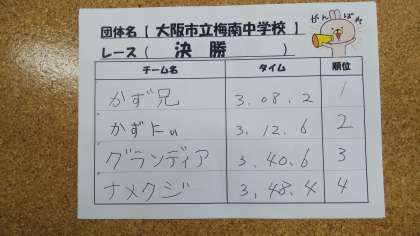 団体名 ( 大阪市立梅南中学校 )
レース ( 決勝 )
がんばれ
チーム名 タイム 順位
かず兄 3.08.2 1
かずにぃ 3.12.6 2
グランディア 3.40.6 3
ナメクジ 3.48.4 4